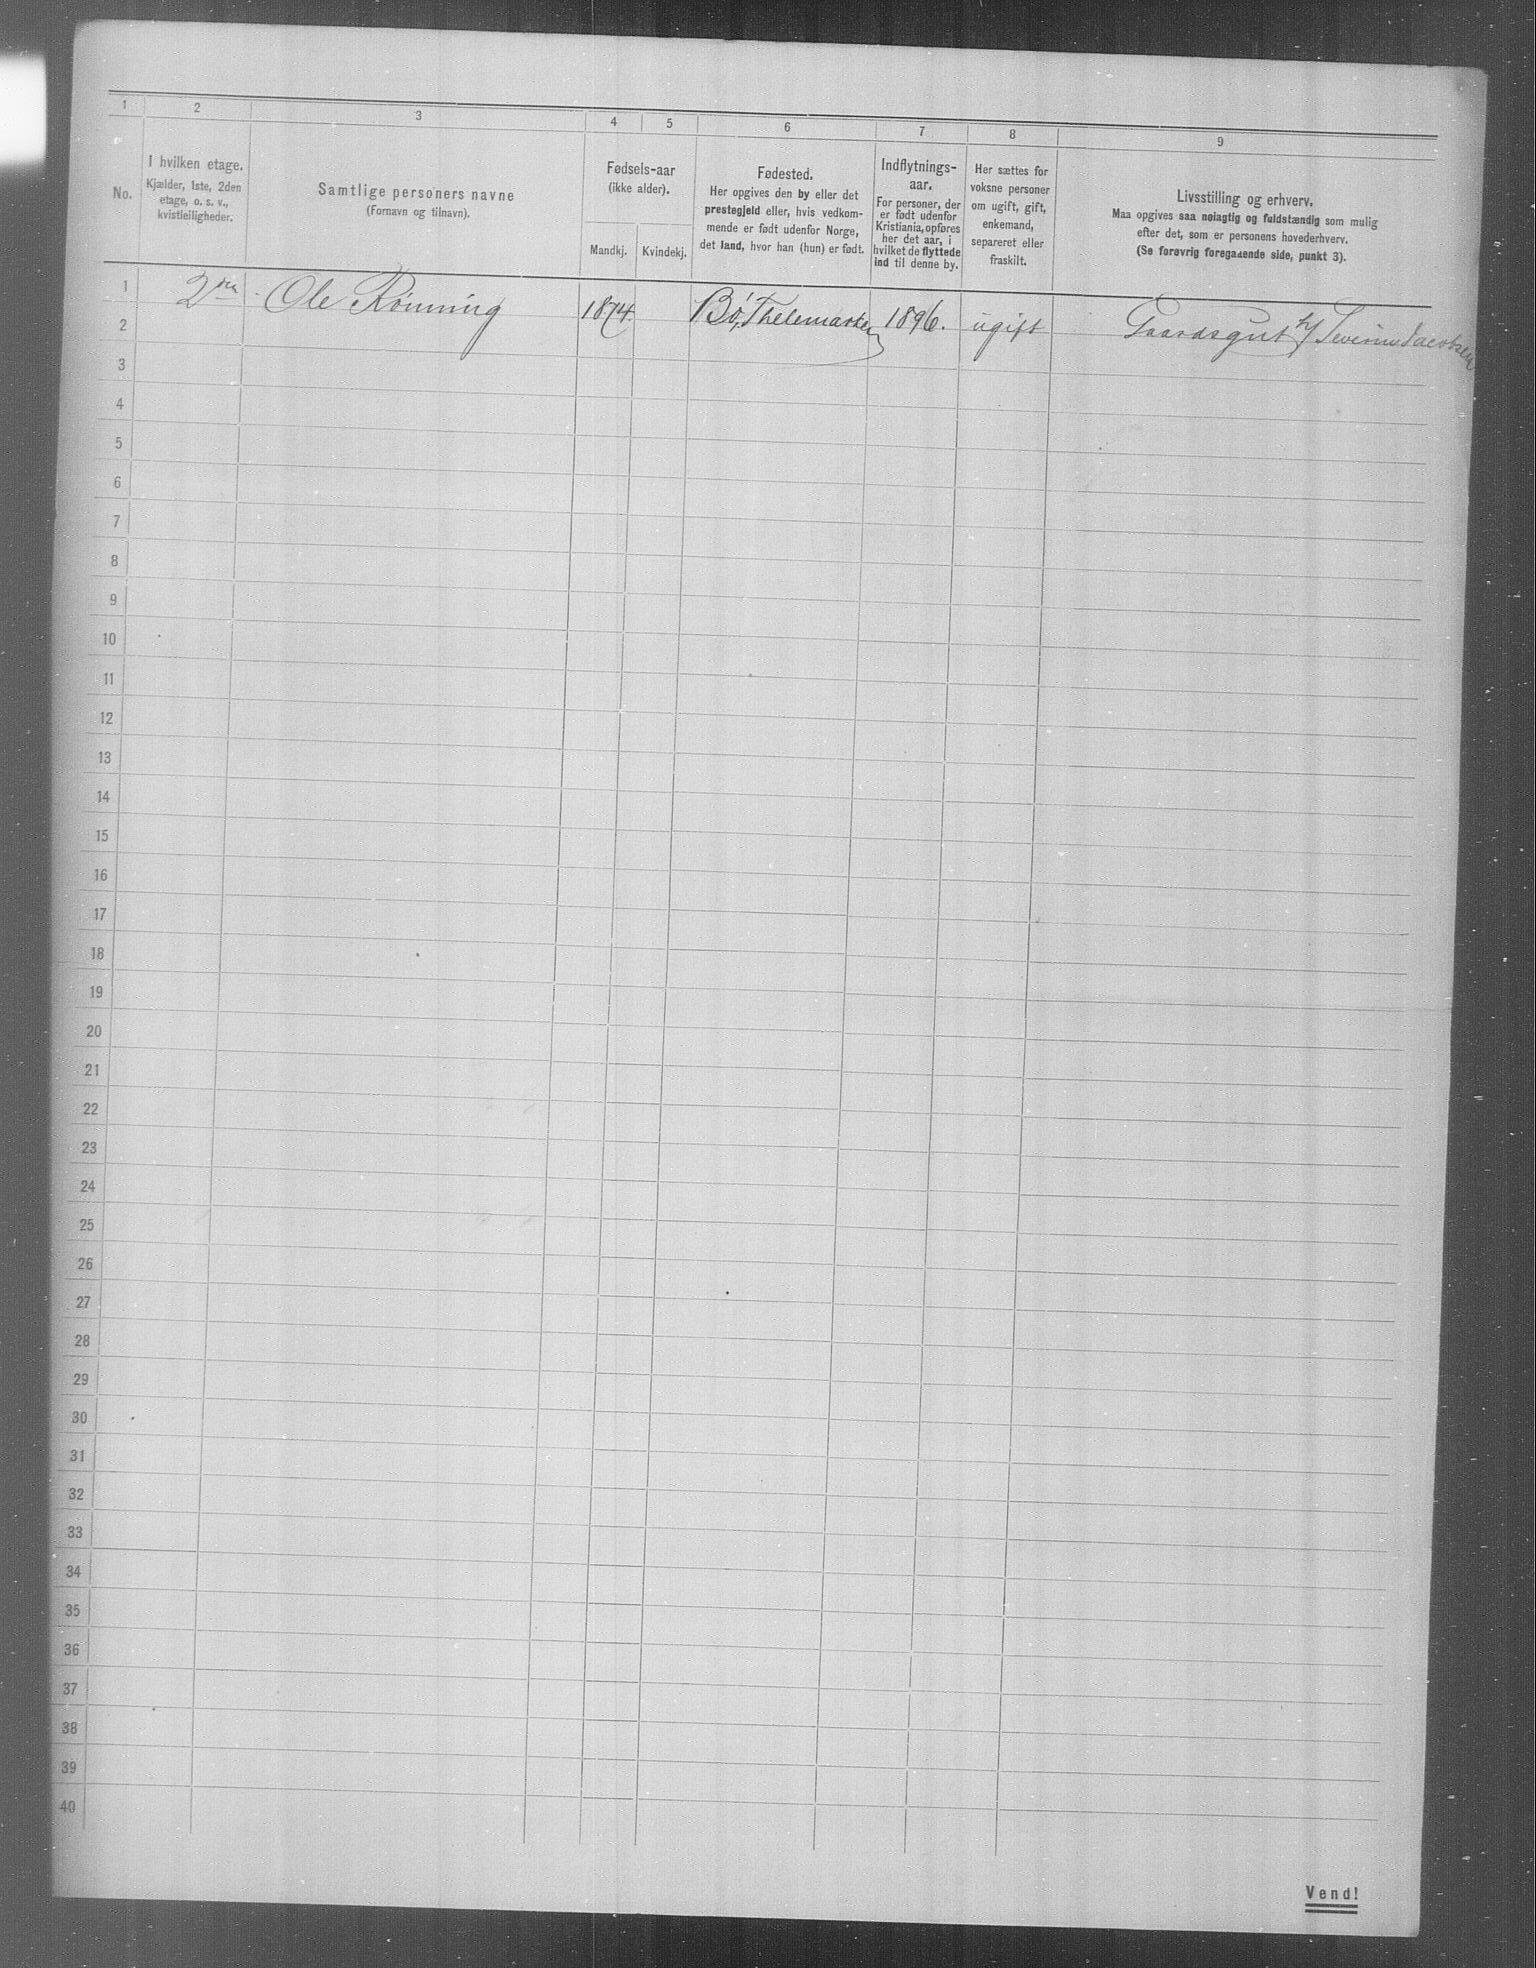 1 2 3 4 5 6 7 8 9
No.
I hvilken etage.
Kjælder, 1ste, 2den
etage, o. s. v.,
kvistleiligheder.
Samtlige personers navne
(Fornavn og tilnavn).
Fødsels-aar
(ikke alder).
Mandkj. Kvindekj.
Fødested.
Her opgives den by eller det
prestegjeld eller, hvis vedkom-
mende er født udenfor Norge,
det land, hvor han (hun) er født.
Indflytnings-
aar.
For personer, der
er født udenfor
Kristiania, opføres
her det aar, i
hvilket de flyttede
ind til denne by.
Her sættes for
voksne personer
om ugift, gift,
enkemand,
separeret eller
fraskilt.
Livsstilling og erhverv.
Maa opgives saa nøiagtig og fuldstændig som mulig
efter det, som er personens hovederhverv.
(Se forøvrig foregaaende side, punkt 3).
1 2den Ole Rönning 1874. Bö, Thelemarken 1896. ugift Gaardsgut h/ Severin Jacobsen
2
3
4
5
6
7
8
9
10
11
12
13
14
15
16
17
18
19
20
21
22
23
24
25
26
27
28
29
30
31
32
33
34
35
36
37
38
39
40
Vend!